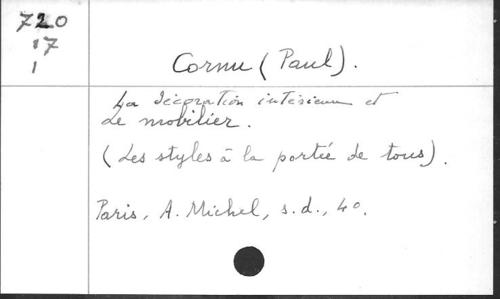 720
17
1
Cornu (Paul).
La décoration intérieure et
Le mobilier.
(Les styles à la portée de tous).
Paris, A. Michel, s.d., 4o.